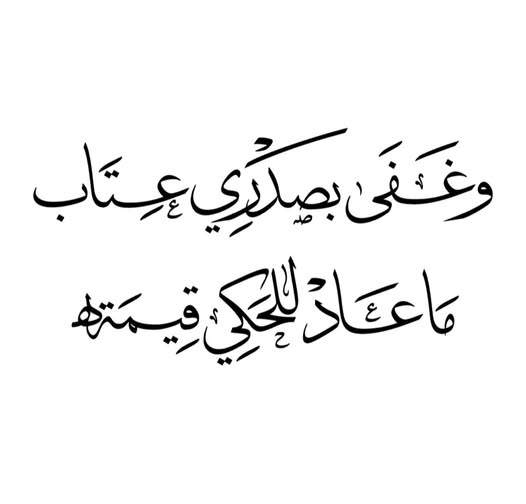 وغَفَى بصدْرِي عِتَاب
مَا عَادْ للحَكِي قِيمَة